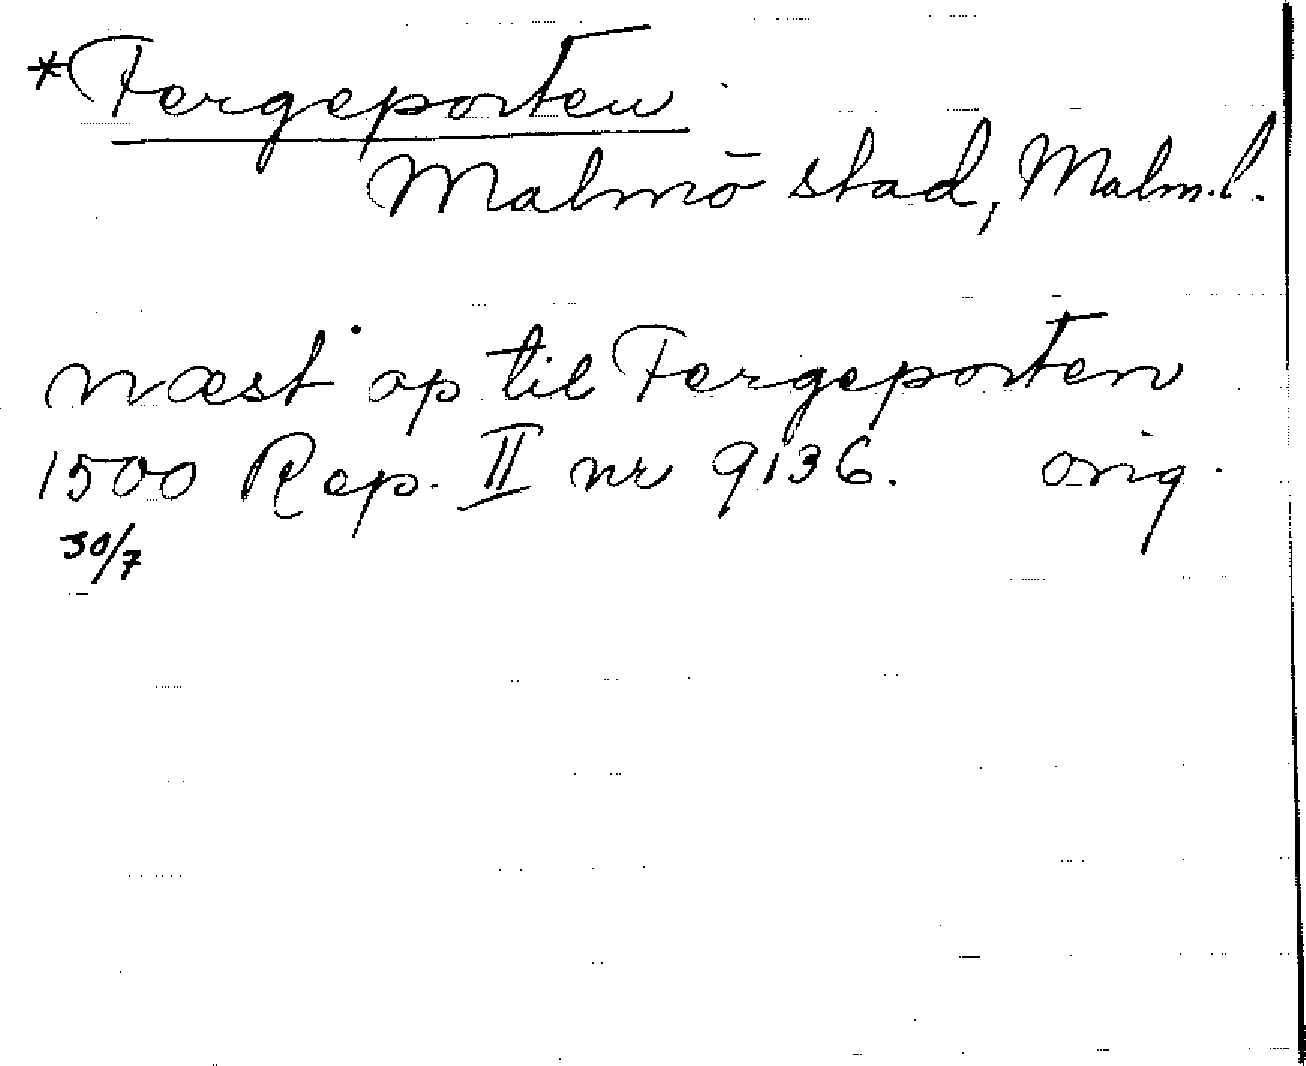 *Fergeporten
Malmö stad, Malm.l.
næst op til Fergeporten
1500 Rep. II nr 9136. orig.
30/7